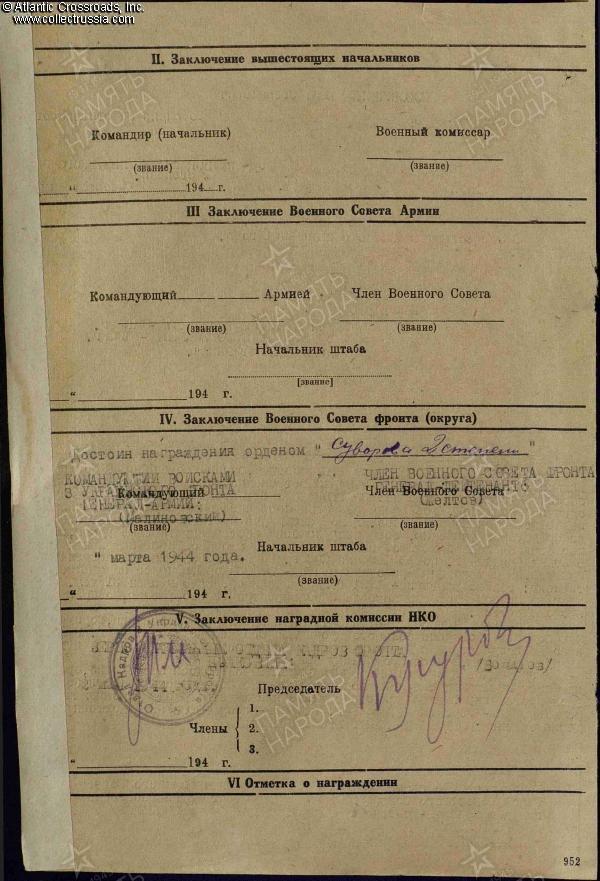 © Atlantic Crossroads, Inc.
www.collectrussia.com
II. Заключение вышестоящих начальников
ПАМЯТЬ НАРОДА
Командир (начальник) Военный комиссар
(звание) (звание)
" 194 г.
III Заключение Военного Совета Армии
Командующий Армией Член Военного Совета
(звание) (звание)
Начальник штаба
[звание]
" 194 г.
IV. Заключение Военного Совета фронта (округа)
Достоин награждения орденом " Суворова 2 степени "
КОМАНДУЮЩИЙ ВОЙСКАМИ ЧЛЕН ВОЕННОГО СОВЕТА ФРОНТА
3 УКРАИНСКОГО ФРОНТА ГЕНЕРАЛ-ЛЕЙТЕНАНТ:
Командующий Член Военного Совета
ГЕНЕРАЛ-АРМИИ: (Желтов)
(Малиновский)
(звание) (звание)
" марта 1944 года. Начальник штаба
(звание)
" 194 г.
V. Заключение наградной комиссии НКО
Председатель
1.
Члены 2.
3.
" 194 г.
VI Отметка о награждении
952